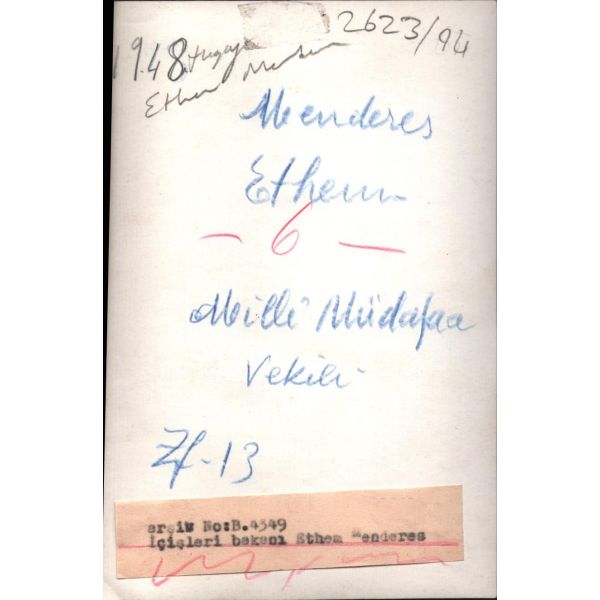 2623/94
1948
Ethem Menderes
Menderes
Ethem
- 6 -
Milli Müdafaa
Vekili
Zf-13
arşiv No:B.4349
İçişleri bakanı Ethem Menderes